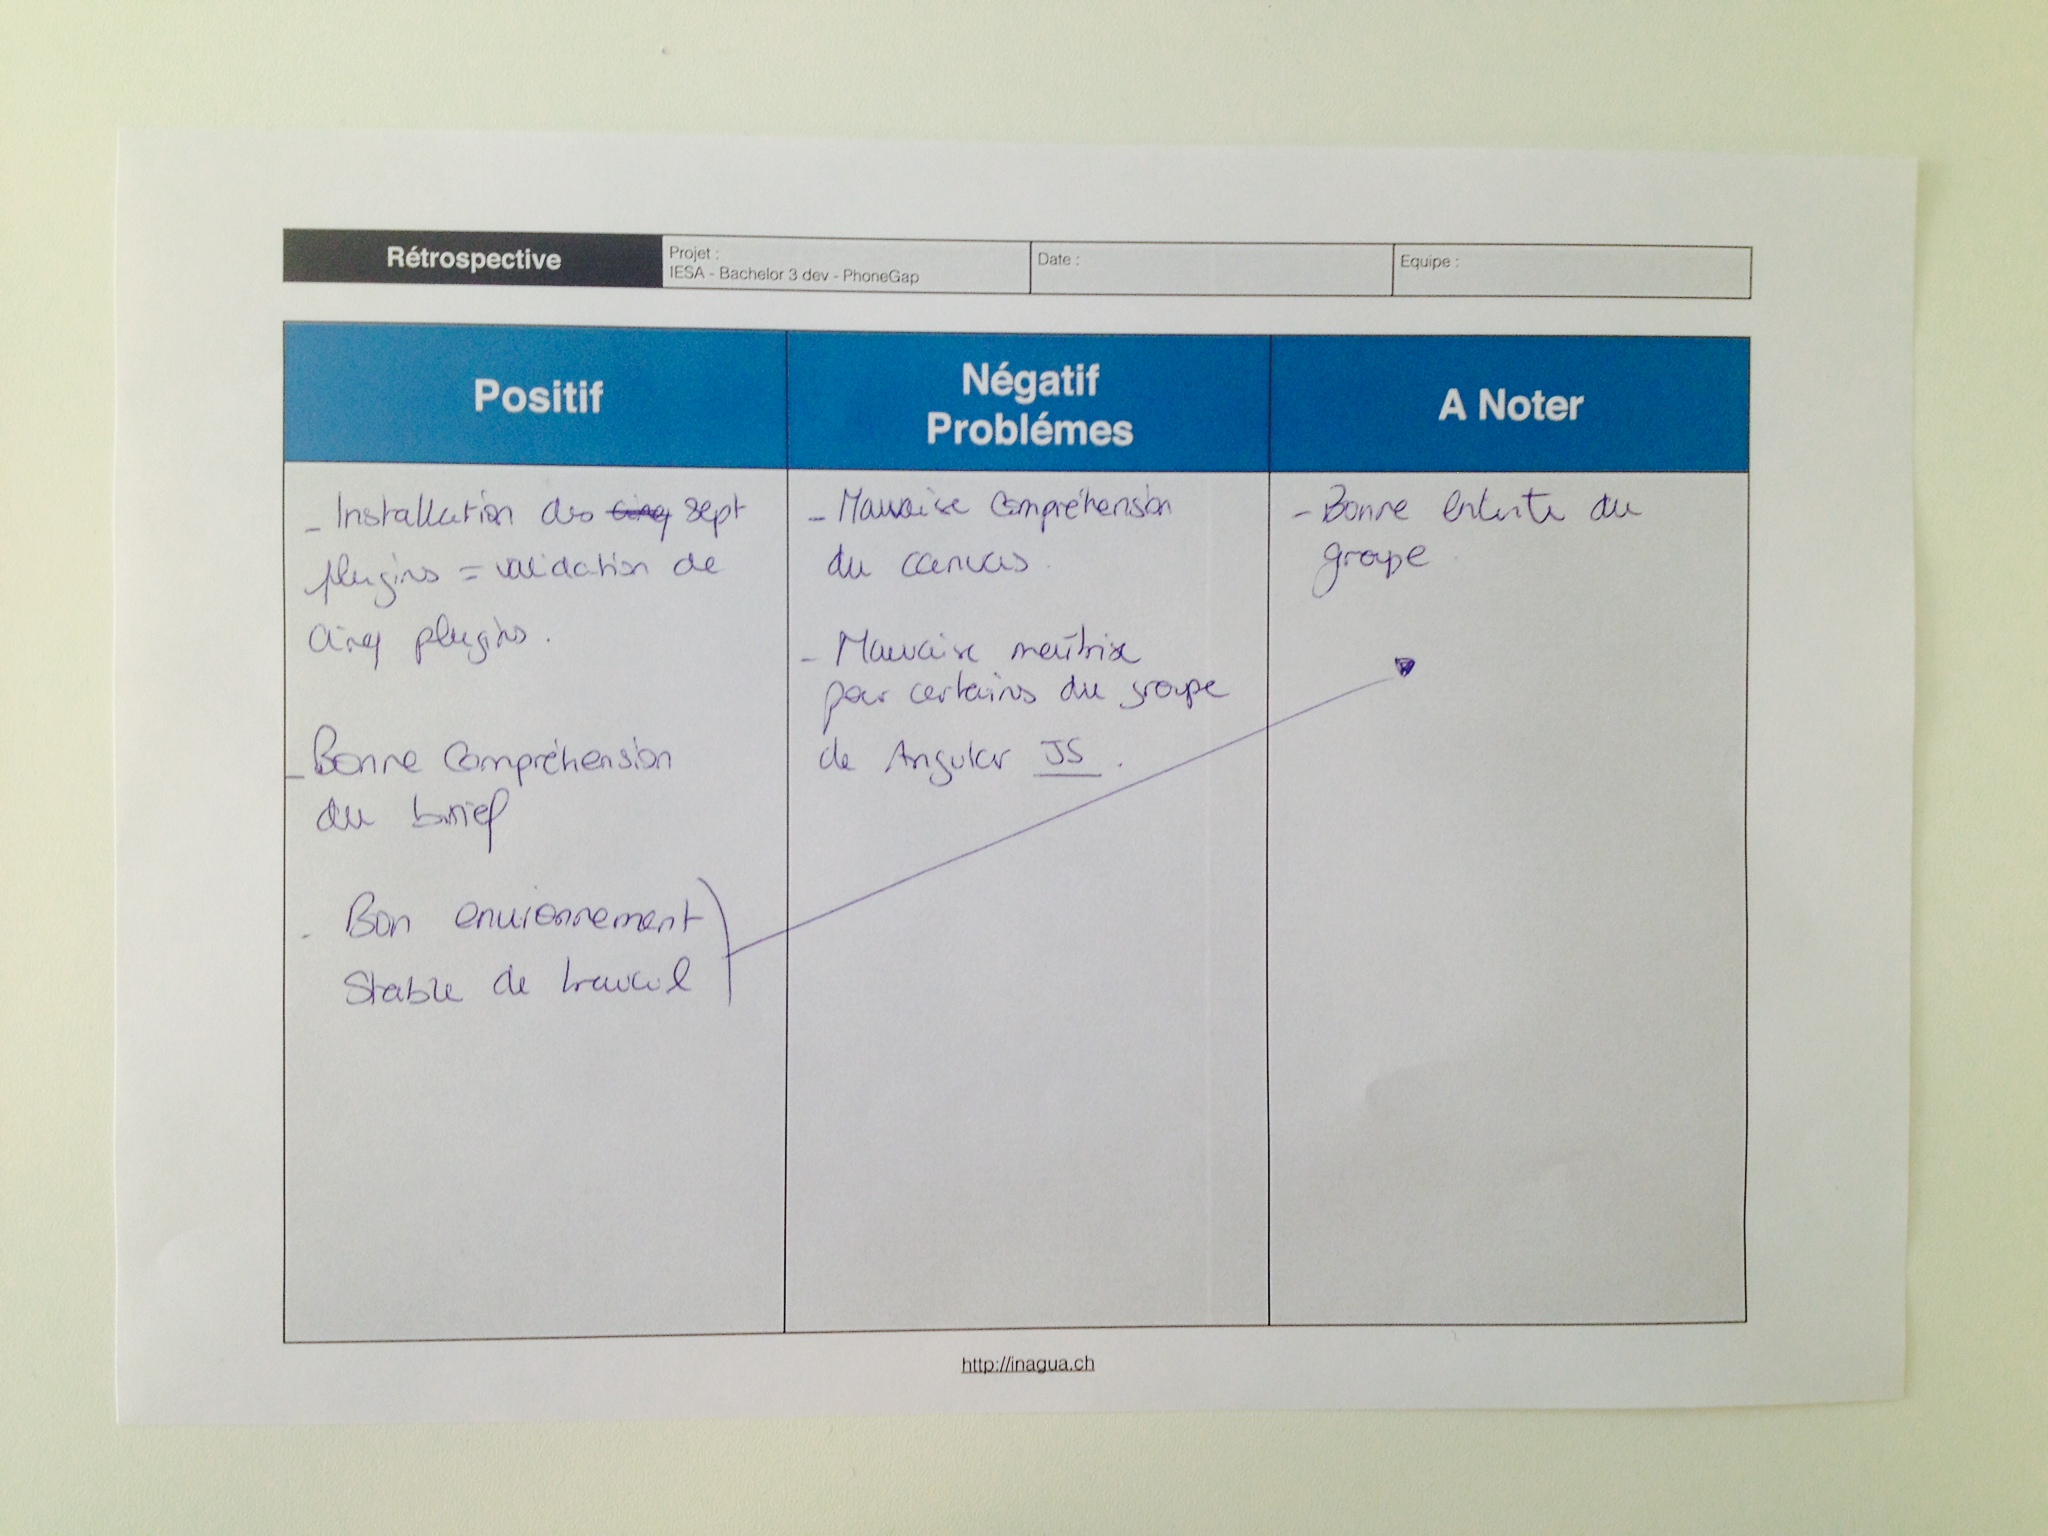 Rétrospective
Projet :
IESA - Bachelor 3 dev - PhoneGap
Date :
Equipe :
Positif
Négatif
Problémes
A Noter
- Installation des cinq sept
plugins = validation de
cinq plugins.
- Bonne compréhension
du brief
- Bon environnement
stable de travail
- Mauvaise compréhension
du canvas.
- Mauvaise maîtrise
pour certains du groupe
de Angular JS.
- Bonne entente du
groupe.
http://inagua.ch